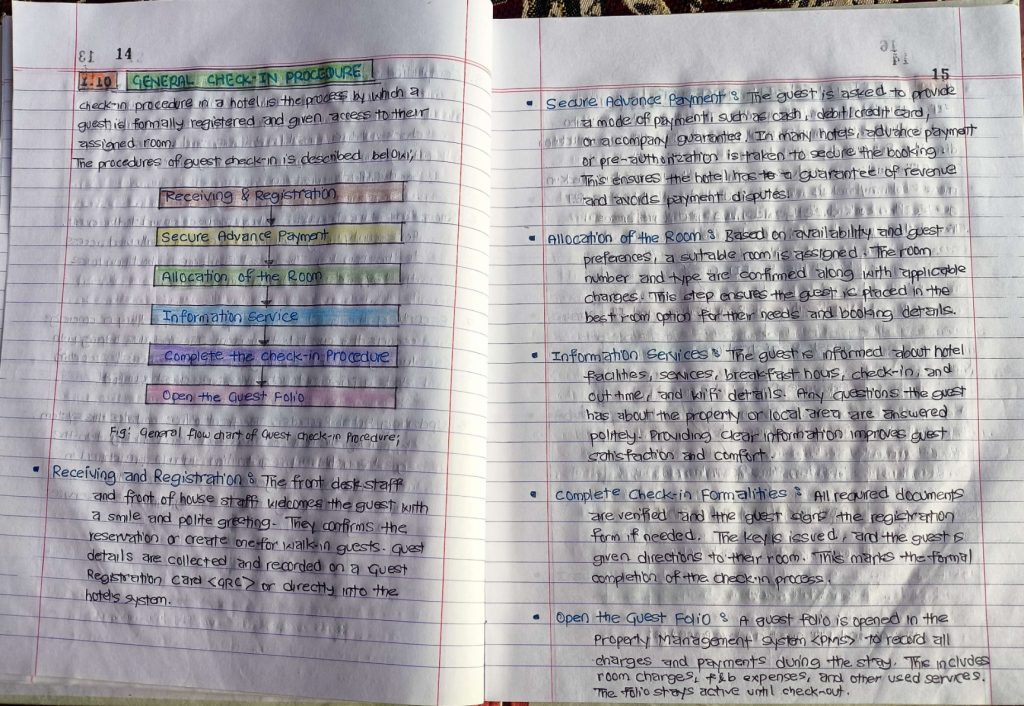 14
1.10 GENERAL CHECK-IN PROCEDURE
check-in procedure in a hotel is the process by which a
guest is formally registered and given access to their
assigned room.
The procedures of guest check-in is described below;
Receiving & Registration
Secure Advance Payment
Allocation of the Room
Information Service
Complete the check-in Procedure
Open the Guest Folio
Fig: General flow chart of Guest check-in Procedure;
• Receiving and Registration : The front desk staff
and front of house staff welcomes the guest with
a smile and polite greeting. They confirms the
reservation or create one for walk-in guests. Guest
details are collected and recorded on a Guest
Registration Card <GRC> or directly into the
hotels system.
15
• Secure Advance Payment : The guest is asked to provide
a mode of payment, such as cash, debit/credit card,
or a company guarantee. In many hotels, advance payment
or pre-authorization is taken to secure the booking.
This ensures the hotel has a guarantee of revenue
and avoids payment disputes.
• Allocation of the Room : Based on availability and guest
preferences, a suitable room is assigned. The room
number and type are confirmed along with applicable
charges. This step ensures the guest is placed in the
best room option for their needs and booking details.
• Information Services : The guest is informed about hotel
facilities, services, breakfast hours, check-in, and
out time, and wifi details. Any questions the guest
has about the property or local area are answered
politely. Providing clear information improves guest
satisfaction and comfort.
• Complete Check-in Formalities : All required documents
are verified and the guest signs the registration
form if needed. The key is issued, and the guest is
given directions to their room. This marks the formal
completion of the check-in process.
• Open the Guest Folio : A guest folio is opened in the
Property Management System <PMS> to record all
charges and payments during the stay. This includes
room charges, f&b expenses, and other used services.
The folio stays active until check-out.